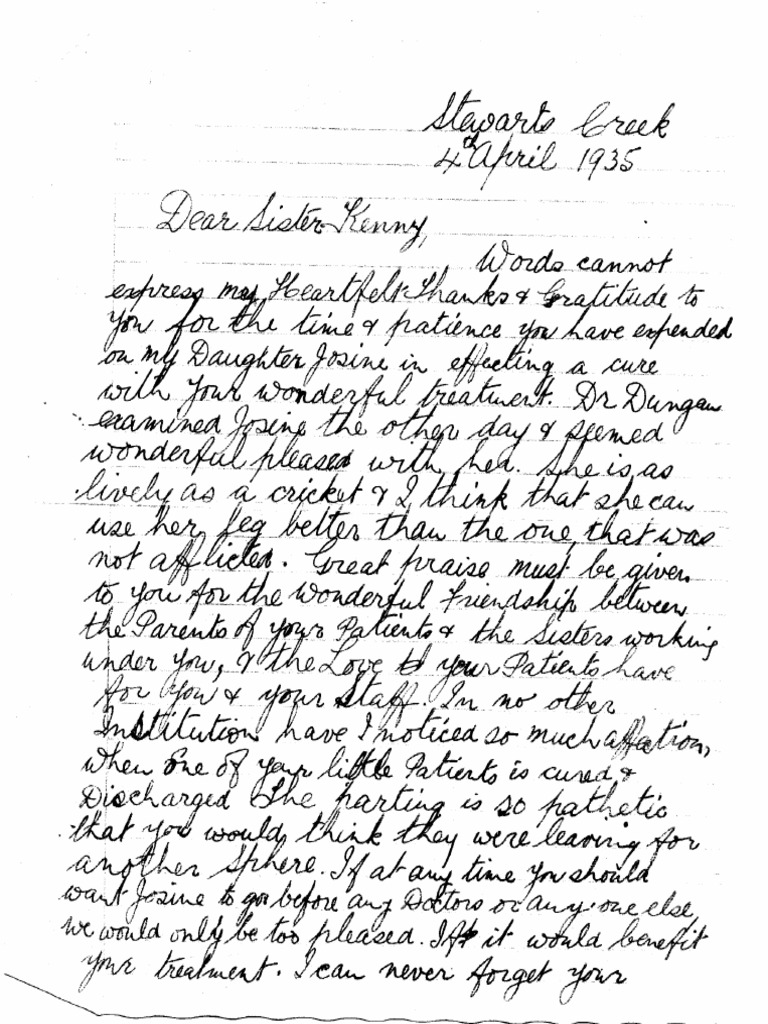 Stewarts Creek
4th April 1935
Dear Sister Kenny,
Words cannot
express my Heartfelt Thanks & Gratitude to
you for the time & patience you have expended
on my Daughter Josine in effecting a cure
with your wonderful treatment. Dr Dungan
examined Josine the other day & seemed
wonderful pleased with her. She is as
lively as a cricket & I think that she can
use her leg better than the one that was
not afflicted. Great praise must be given
to you for the wonderful Friendship between
the Parents of your Patients & the Sisters working
under you, & the Love your Patients have
for you & your Staff. In no other
Institution have I noticed so much affection,
when one of your little Patients is cured &
Discharged The parting is so pathetic
that you would think they were leaving for
another Sphere. If at any time you should
want Josine to go before any Doctors or any one else,
we would only be too pleased. If it would benefit
your treatment. I can never forget your